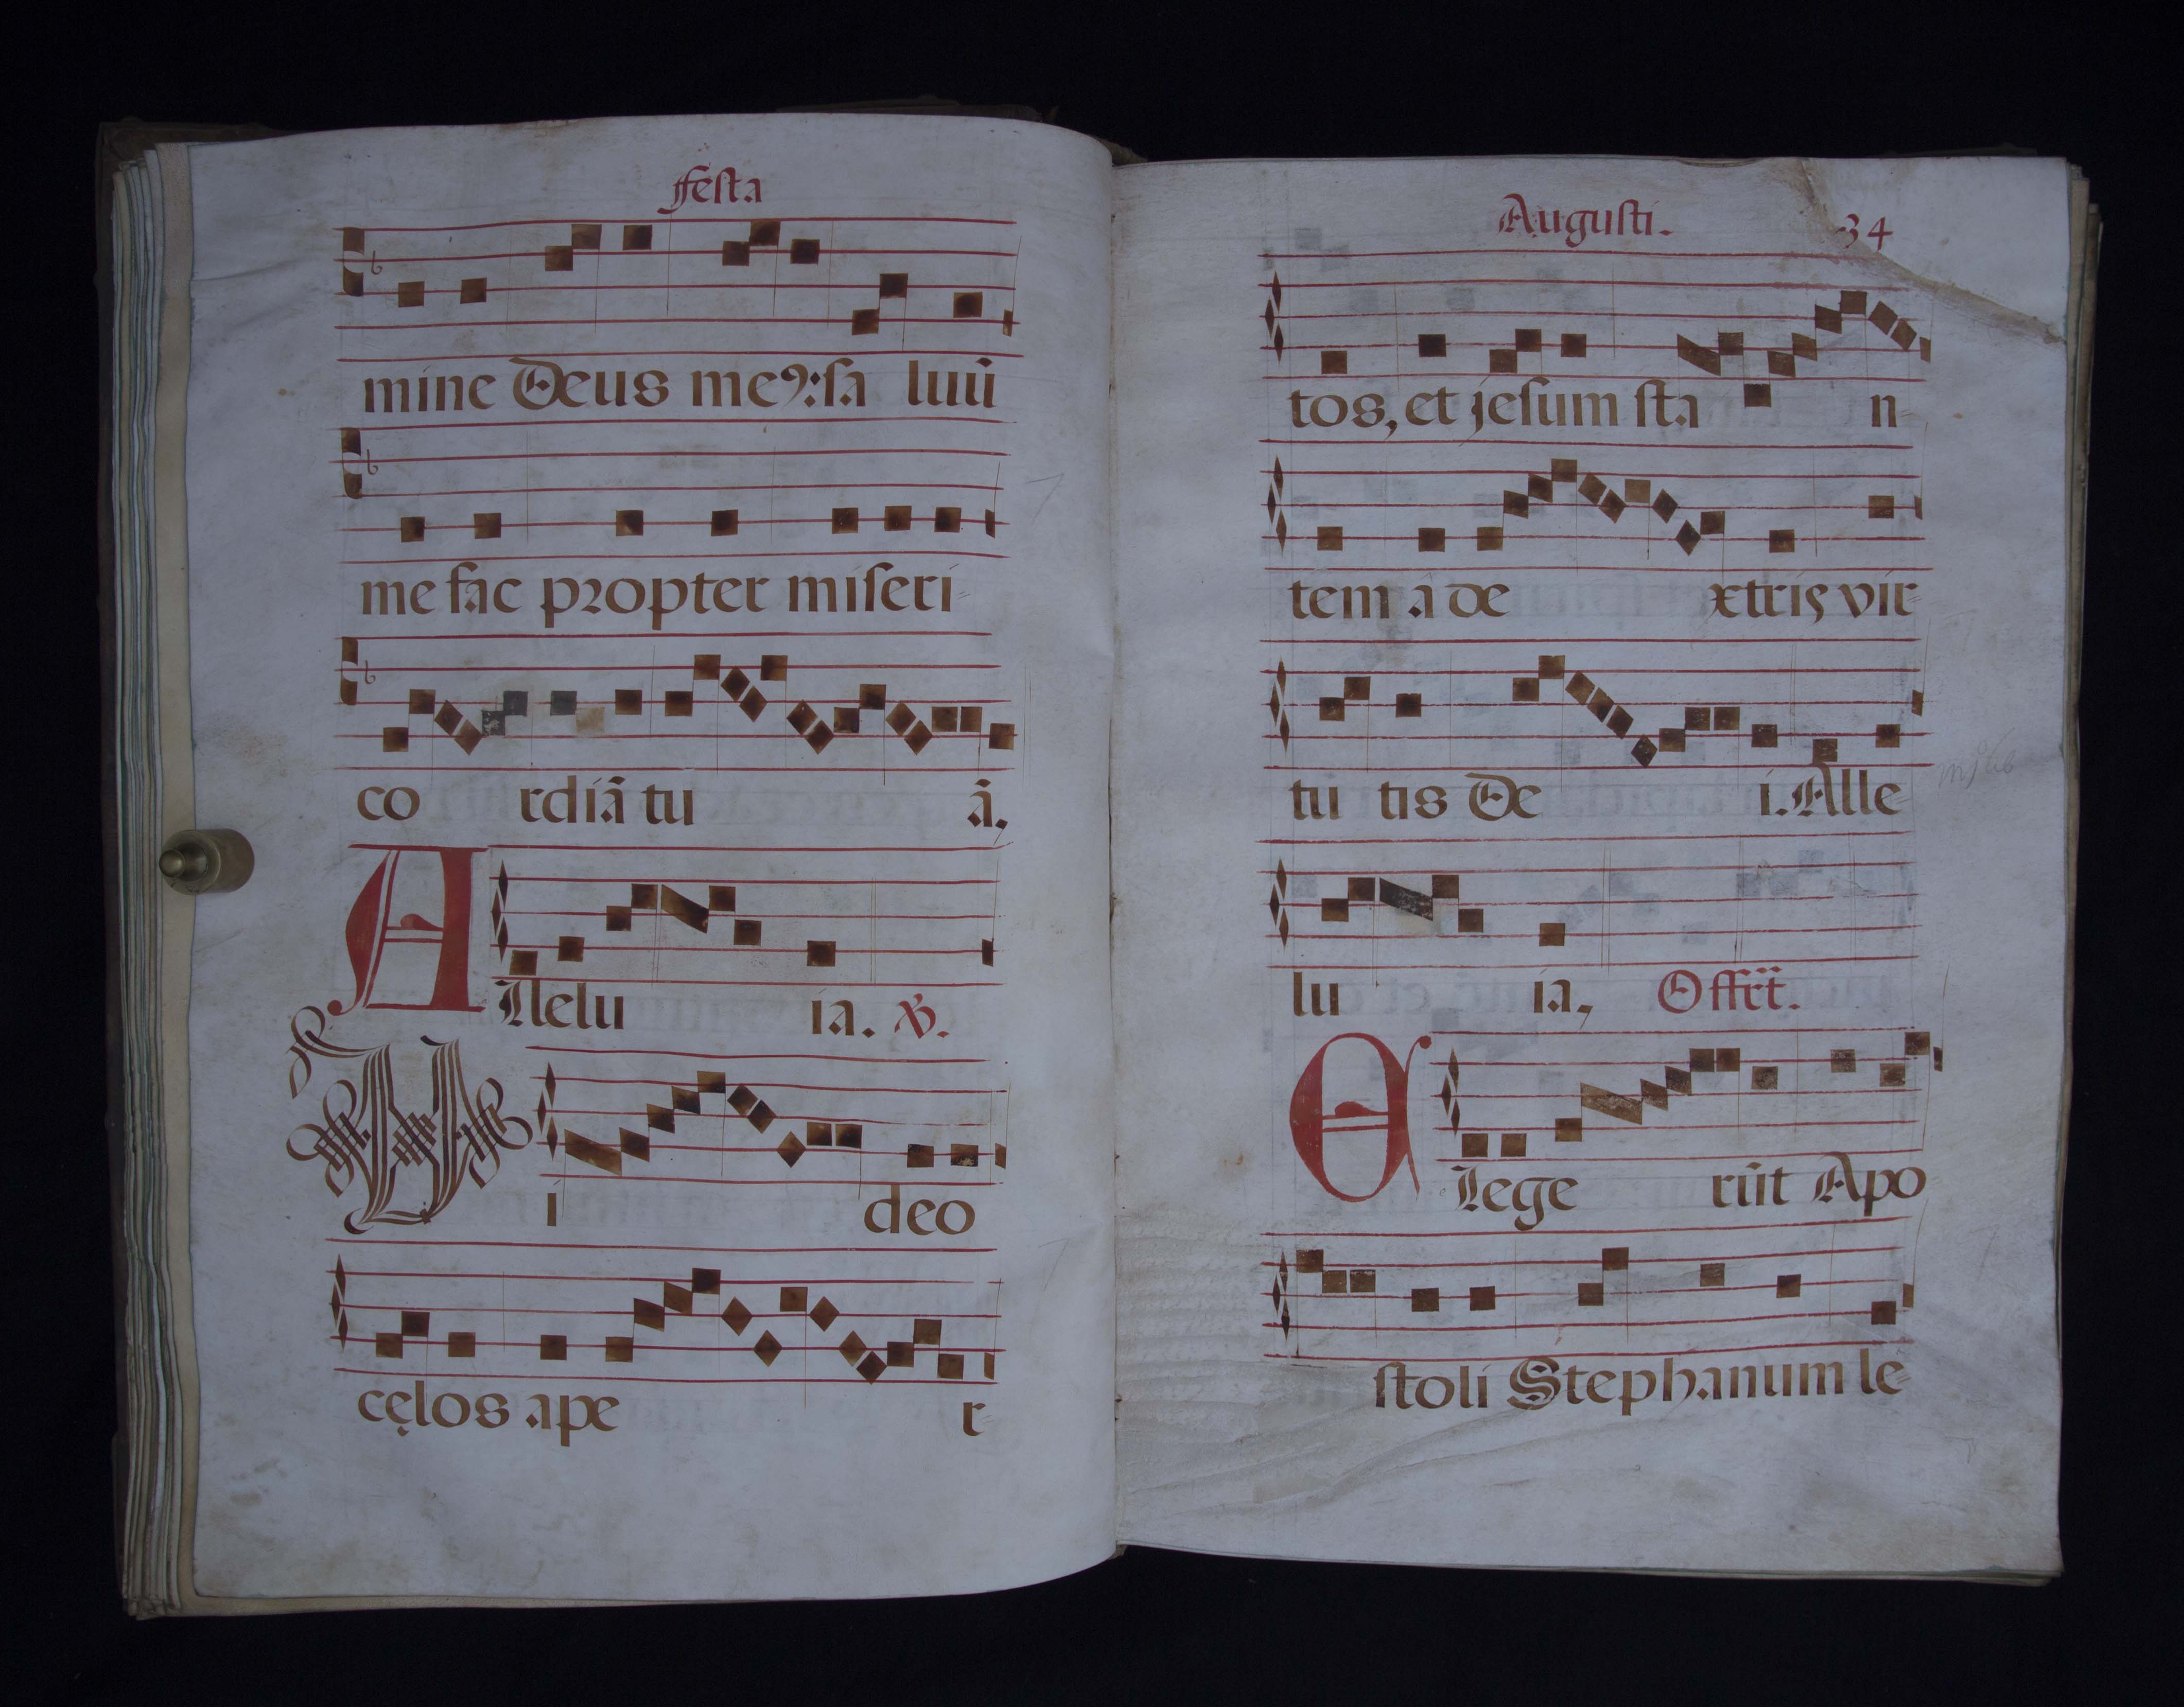 Festa
mine Deus me9: sa luū
me fac propter miseri=
co rdiā tu ā,
Allelu ia. ℣.
Vi deo
cęlos ape r=
Augusti. 34
tos, et jesum sta n=
tem â de xtris vir=
tu tis De i. Alle=
lu ia, Offrt.
Elege rūt Apo
stoli Stephanum le=